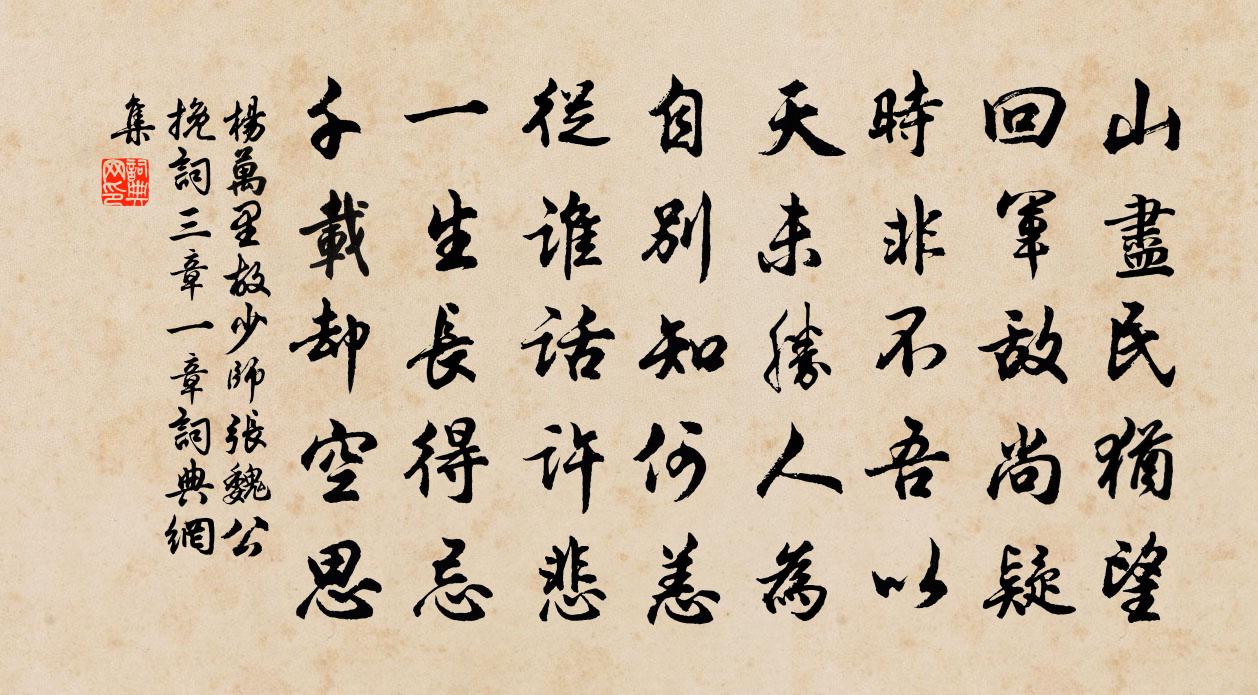 山盡民猶望
回軍敵尚疑
時非不吾以
天未勝人為
自別知何恙
從誰話許悲
一生長得忌
千載却空思
楊萬里故少師張魏公
挽詞三章一章詞典網
集
詞典
网印